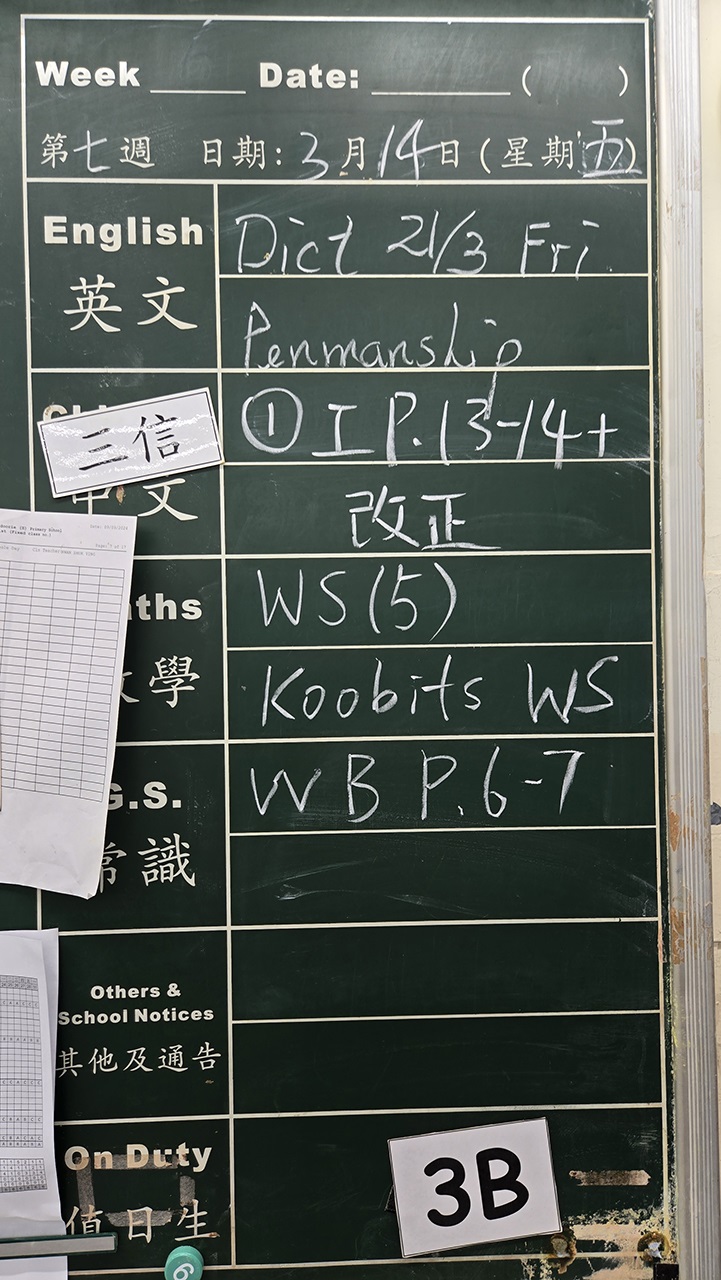 Week ____ Date: ______ ( )
第七週 日期: 3月14日 (星期五)
English
英文
Dict 21/3 Fri
Penmanship
三信
中文
① 工 P.13-14+
改正
ths
學
WS(5)
Koobits WS
G.S.
常識
WB P.6-7
Others &
School Notices
其他及通告
On Duty
值日生
3B
6